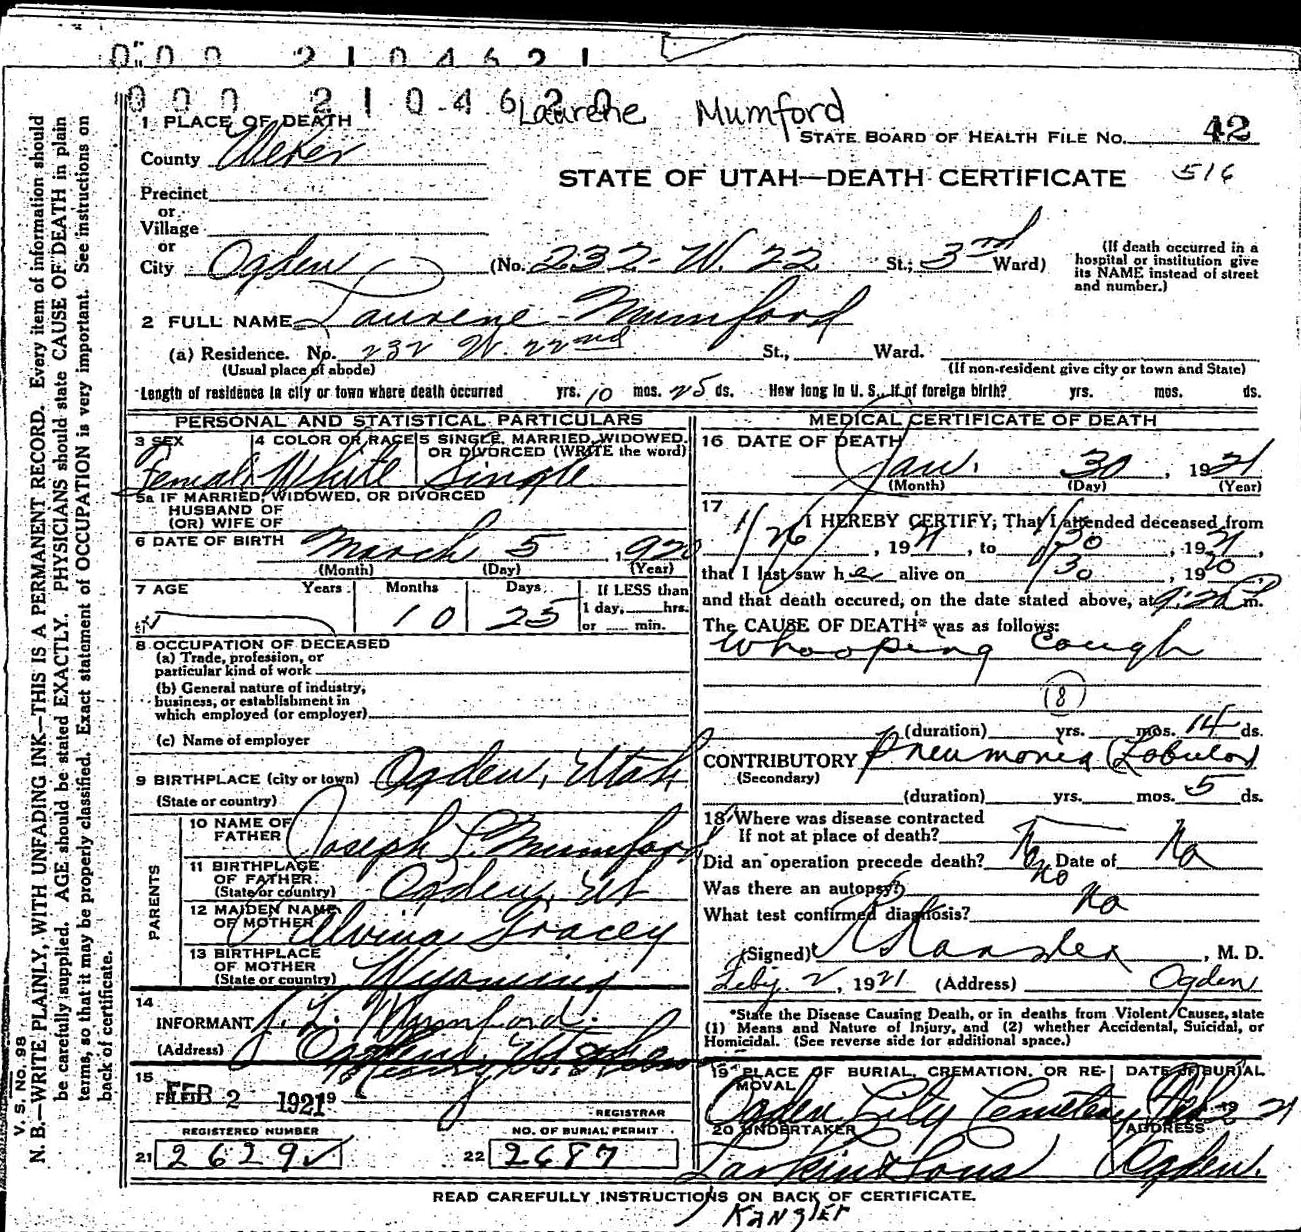 000 2104621
000 2104620
Laurene Mumford
1 PLACE OF DEATH
STATE BOARD OF HEALTH FILE No. 42
County Weber
STATE OF UTAH—DEATH CERTIFICATE 516
Precinct
or
Village
or
City Ogden (No. 232 W. 22 St.; 3rd Ward)
(If death occurred in a hospital or institution give its NAME instead of street and number.)
2 FULL NAME Laurene Mumford
(a) Residence. No. 232 W. 22nd St., Ward.
(Usual place of abode) (If non-resident give city or town and State)
Length of residence in city or town where death occurred yrs. 10 mos. 25 ds. How long in U. S., if of foreign birth? yrs. mos. ds.
PERSONAL AND STATISTICAL PARTICULARS
3 SEX Female
4 COLOR OR RACE White
5 SINGLE, MARRIED, WIDOWED, OR DIVORCED (WRITE the word) Single
5a IF MARRIED, WIDOWED, OR DIVORCED
HUSBAND OF
(OR) WIFE OF
6 DATE OF BIRTH March 5, 1920
(Month) (Day) (Year)
7 AGE Years Months Days If LESS than
10 25 1 day, hrs.
or min.
8 OCCUPATION OF DECEASED
(a) Trade, profession, or
particular kind of work
(b) General nature of industry,
business, or establishment in
which employed (or employer)
(c) Name of employer
9 BIRTHPLACE (city or town) Ogden, Utah
(State or country)
PARENTS
10 NAME OF
FATHER Joseph L. Mumford
11 BIRTHPLACE
OF FATHER Ogden, Ut
(State or country)
12 MAIDEN NAME
OF MOTHER Alvina Tracey
13 BIRTHPLACE
OF MOTHER Wyoming
(State or country)
14
INFORMANT J. L. Mumford.
(Address) Ogden, Ut
15
FILED FEB 2 1921 19
REGISTRAR
REGISTERED NUMBER NO. OF BURIAL PERMIT
21 2629 22 2687
MEDICAL CERTIFICATE OF DEATH
16 DATE OF DEATH
Jan. 30, 1921
(Month) (Day) (Year)
17 I HEREBY CERTIFY, That I attended deceased from
1/26, 1921, to 1/30, 1921,
that I last saw her alive on 1/30, 1920
and that death occured, on the date stated above, at m.
The CAUSE OF DEATH* was as follows:
Whooping Cough
(8)
(duration) yrs. mos. 14 ds.
CONTRIBUTORY Pneumonia (Lobular)
(Secondary)
(duration) yrs. mos. 5 ds.
18 Where was disease contracted
If not at place of death?
Did an operation precede death? No Date of No
Was there an autopsy? No
What test confirmed diagnosis? No
(Signed) , M. D.
Feby. 2, 1921 (Address) Ogden
*State the Disease Causing Death, or in deaths from Violent Causes, state
(1) Means and Nature of Injury, and (2) whether Accidental, Suicidal, or
Homicidal. (See reverse side for additional space.)
19 PLACE OF BURIAL, CREMATION, OR REMOVAL DATE OF BURIAL
Ogden City Cemetery Feb 2 1921
20 UNDERTAKER ADDRESS
Larkin & Sons Ogden.
READ CAREFULLY INSTRUCTIONS ON BACK OF CERTIFICATE.
KANGLER
V. S. No. 98
N. B.—WRITE PLAINLY, WITH UNFADING INK—THIS IS A PERMANENT RECORD. Every item of information should
be carefully supplied. AGE should be stated EXACTLY. PHYSICIANS should state CAUSE OF DEATH in plain
terms, so that it may be properly classified. Exact statement of OCCUPATION is very important. See instructions on
back of certificate.